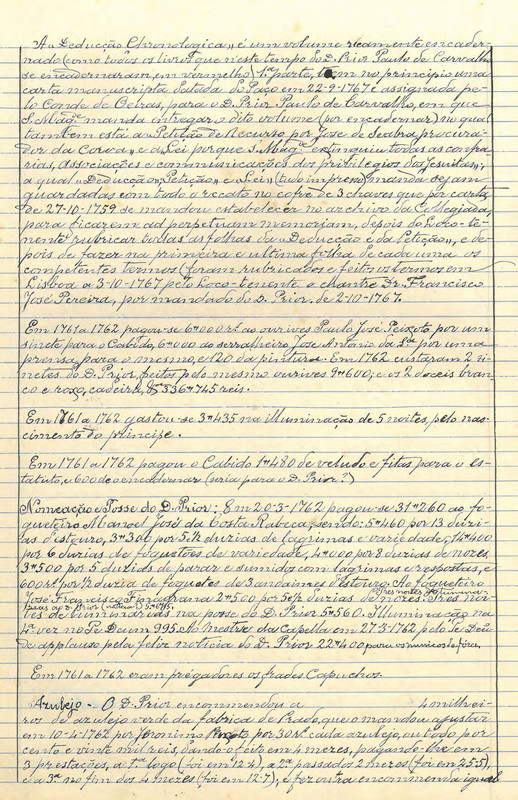 A «Deducção Chronologica» é um volume ricamente encader-
nado (como todos os livros que neste tempo do D. Prior Paulo de Carvalho
se encadernaram, em vermelho) 1ª parte, tem no principio uma
carta manuscripta datada do Paço em 22-9-1767 é assignada pe-
lo Conde de Oeiras, para o D. Prior Paulo de Carvalho, em que
S. Magᵉ manda entregar o dito volume (por encadernar) no qual
tambem está a «Petição de Recurso por José de Seabra, procura-
dor da Coroa» e a «Lei porque S. Magᵉ extinguiu todas as confra-
rias, Associações e communicações dos privilegios dos Jesuitas»;
a qual «Deducção», «Petição» e «Lei» (tudo impresso) manda sejam
guardadas com todo o recato no cofre de 3 chaves que por carta
de 27-10-1759 se mandou estabelecer no archivo da Collegiada,
para ficarem ad perpetuam memoriam, depois do Loco-te-
nente rubricar todas as folhas da «Deducção» e da «Petição», e de-
pois de fazer na primeira e ultima folha de cada uma os
competentes termos (foram rubricados e feitos os termos em
Lisboa a 3-10-1767 pelo Loco-tenente, o chantre Dr. Francisco
José Pereira, por mandado do D. Prior, de 2-10-1767.
Em 1761 a 1762 pagou-se 6"000 rˢ ao ourives Paulo José Peixoto por um
sinete para o Cabido, 6"000 ao serralheiro José Antonio da Sª por uma
prensa para o mesmo, e 120 da pintura. Em 1762 custaram 2 si-
netes do D. Prior, feitos pelo mesmo ourives 9"600; e os 2 doceis bran-
co e roxo, cadeira, 536"745 reis.
Em 1761 a 1762 gastou-se 3"435 na illuminação de 5 noites, pelo nas-
cimento do principe.
Em 1761 a 1762 pagou o Cabido 1"480 de veludo e fitas para o es-
tatuto, e 600 de o encadernar (seria para o D. Prior?)
Nomeação e Posse do D. Prior: Em 20-3-1762 pagou-se 31"260 ao fo-
gueteiro Manoel José da Costa Rabeca, sendo: 5"460 por 13 duzi-
as d'estouro, 3"300 por 5½ duzias de lagrimas e variedade, 14"400
por 6 duzias de foguetões de variedade, 4"000 por 8 duzias de nozes,
3"500 por 5 duzias de parar e sumidos com lagrimas e respostas, e
600 rˢ por ½ duzia de foguetes de 3 andaimes d'estouro. Ao fogueteiro
José Francisco 2"500 por 5 duzias de nozes. Tres noi-
tes de luminarias na posse do D. Prior 5"560. Illuminação na
4ª vez no Te Deum 995. Ao Mestre da Capella em 27-3-1762 pelo Te Deũ
de applauso pela feliz noticia do D. Prior 22"400 para os musicos de fóra.
Em 1761 a 1762 eram prégadores os frades Capuchos.
Azulejo - O D. Prior encommendou a 4 milhei-
ros de azulejo verde da fabrica de Prado, que o mandou ajustar
em 10-4-1762 por Jeronimo Peixoto por 30 rˢ cada azulejo, ou todo por
cento e vinte mil reis, dando-o feito em 4 mezes, pagando-lhe em
3 prestações, a 1ª logo (foi em 12-4), a 2ª passados 2 mezes (foi em 25-5),
e a 3ª no fim dos 4 mezes (foi em 12-7); e fez outra encommenda igual